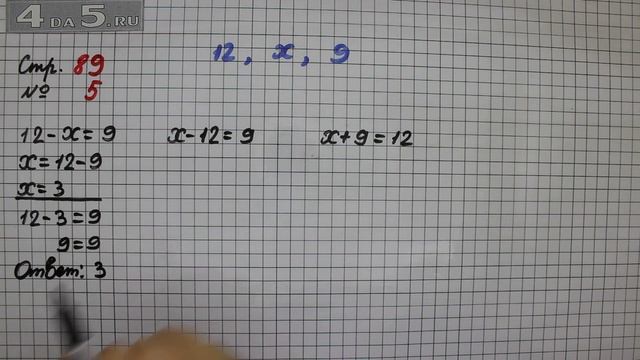 4DA5.RU
12, x, 9
Стр. 89
№ 5
12-x=9
x=12-9
x=3
12-3=9
9=9
Ответ: 3
x-12=9
x+9=12